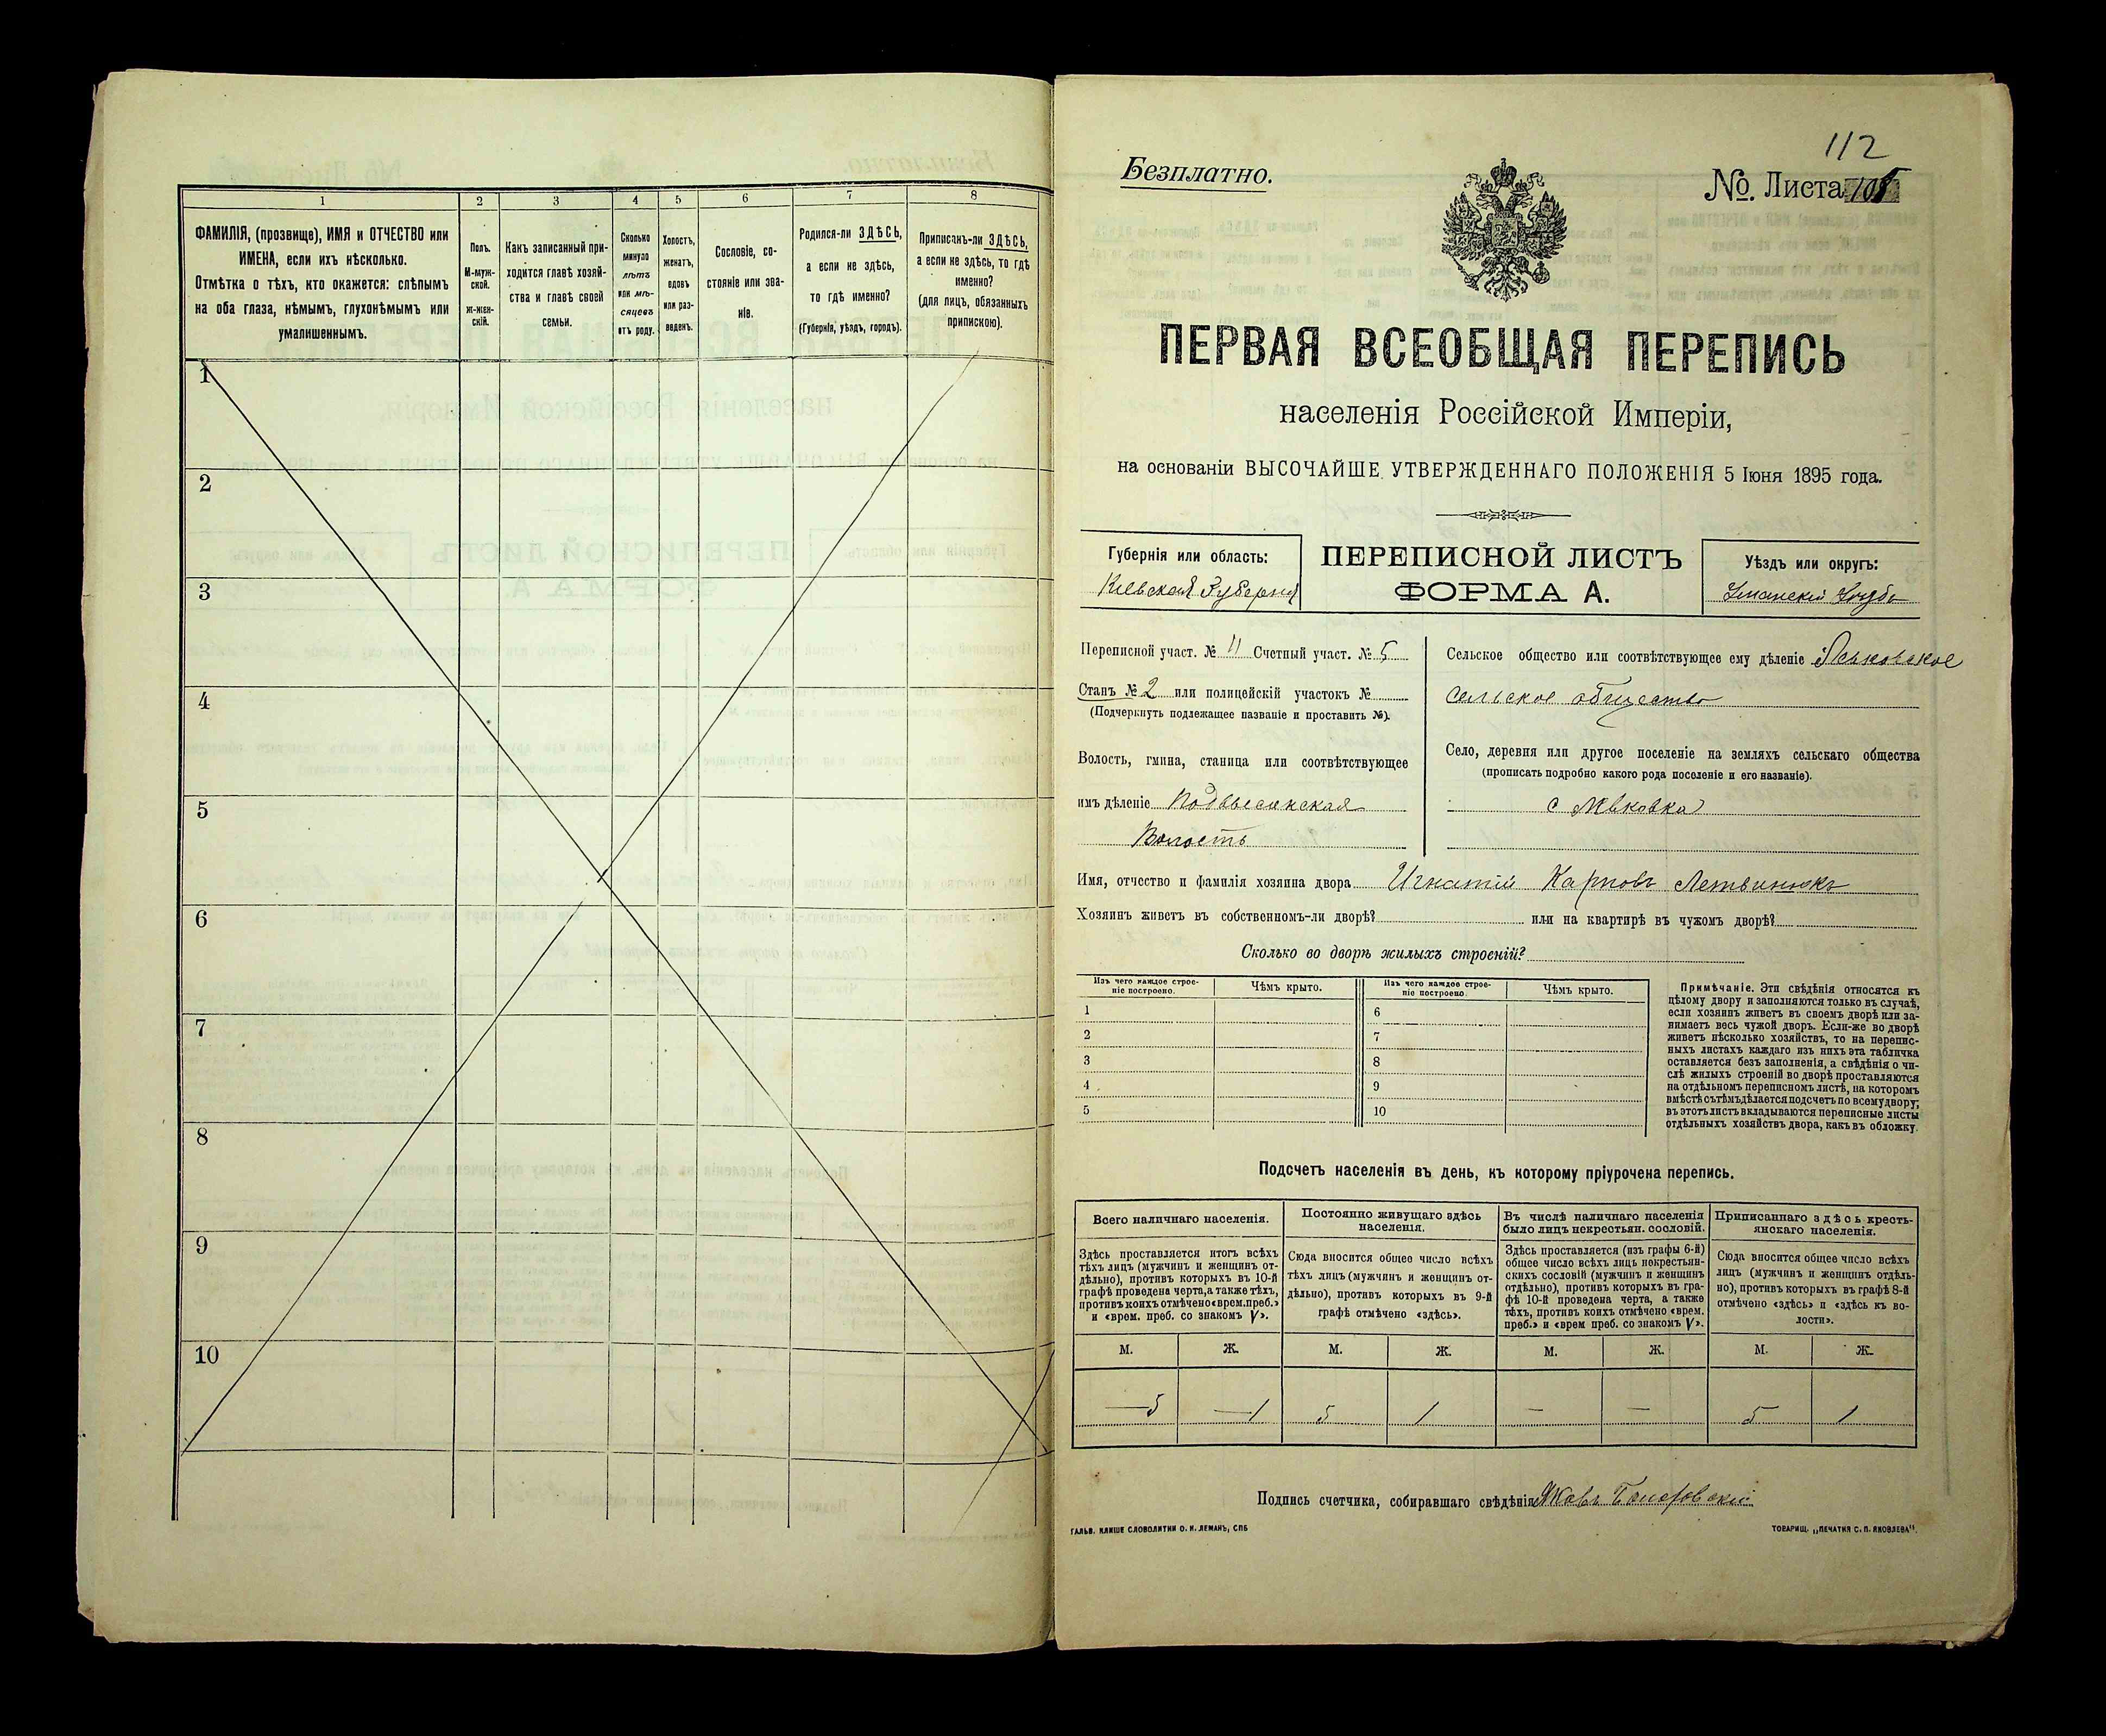 1
2
3
4
5
6
7
8
ФАМИЛІЯ, (прозвище), ИМЯ и ОТЧЕСТВО или
ИМЕНА, если ихъ нѣсколько.
Отмѣтка о тѣхъ, кто окажется: слѣпымъ
на оба глаза, нѣмымъ, глухонѣмымъ или
умалишеннымъ.
Полъ.
М-муж-
ской.
ж-жен-
скій.
Какъ записанный при-
ходится главѣ хозяй-
ства и главѣ своей
семьи.
Сколько
минуло
лѣтъ
или мѣ-
сяцевъ
отъ роду.
Холостъ,
женатъ,
вдовъ
или раз-
веденъ.
Сословіе, со-
стояніе или зва-
ніе.
Родился-ли ЗДѢСЬ,
а если не здѣсь,
то гдѣ именно?
(Губернія, уѣздъ, городъ).
Приписанъ-ли ЗДѢСЬ,
а если не здѣсь, то гдѣ
именно?
(для лицъ, обязанныхъ
припискою).
1
2
3
4
5
6
7
8
9
10
112
Безплатно.
№. Листа 105
ПЕРВАЯ ВСЕОБЩАЯ ПЕРЕПИСЬ
населенія Россійской Имперіи,
на основаніи ВЫСОЧАЙШЕ УТВЕРЖДЕННАГО ПОЛОЖЕНІЯ 5 Іюня 1895 года.
Губернія или область:
Кіевская Губернія
ПЕРЕПИСНОЙ ЛИСТЪ
ФОРМА А.
Уѣздъ или округъ:
Уманскій Уѣздъ
Переписной участ. № 11 Счетный участ. № 5
Станъ № 2 или полицейскій участокъ №
(Подчеркнуть подлежащее названіе и проставить №).
Волость, гмина, станица или соотвѣтствующее
имъ дѣленіе Подвысоцкая
Волость
Сельское общество или соотвѣтствующее ему дѣленіе
сельское общество
Село, деревня или другое поселеніе на земляхъ сельскаго общества
(прописать подробно какого рода поселеніе и его названіе).
с
Имя, отчество и фамилія хозяина двора Игнатій Карповъ Летвинюкъ
Хозяинъ живетъ въ собственномъ-ли дворѣ? или на квартирѣ въ чужомъ дворѣ?
Сколько во дворѣ жилыхъ строеній?
Изъ чего каждое строе-
ніе построено.
Чѣмъ крыто.
Изъ чего каждое строе-
ніе построено.
Чѣмъ крыто.
1
2
3
4
5
6
7
8
9
10
Примѣчаніе. Эти свѣдѣнія относятся къ
цѣлому двору и заполняются только въ случаѣ,
если хозяинъ живетъ въ своемъ дворѣ или за-
нимаетъ весь чужой дворъ. Если-же во дворѣ
живетъ нѣсколько хозяйствъ, то на перепис-
ныхъ листахъ каждаго изъ нихъ эта табличка
оставляется безъ заполненія, а свѣдѣнія о чи-
слѣ жилыхъ строеній во дворѣ проставляются
на отдѣльномъ переписномъ листѣ, на которомъ
вмѣстѣ съ тѣмъ дѣлается подсчетъ по всему двору;
въ этотъ листъ вкладываются переписные листы
отдѣльныхъ хозяйствъ двора, какъ въ обложку.
Подсчетъ населенія въ день, къ которому пріурочена перепись.
Всего наличнаго населенія.
Здѣсь проставляется итогъ всѣхъ
тѣхъ лицъ (мужчинъ и женщинъ от-
дѣльно), противъ которыхъ въ 10-й
графѣ проведена черта, а также тѣхъ,
противъ коихъ отмѣчено «врем. преб.»
и «врем. преб. со знакомъ V».
Постоянно живущаго здѣсь
населенія.
Сюда вносится общее число всѣхъ
тѣхъ лицъ (мужчинъ и женщинъ от-
дѣльно), противъ которыхъ въ 9-й
графѣ отмѣчено «здѣсь».
Въ числѣ наличнаго населенія
было лицъ некрестьян. сословій.
Здѣсь проставляется (изъ графы 6-й)
общее число всѣхъ лицъ некрестьян-
скихъ сословій (мужчинъ и женщинъ
отдѣльно), противъ которыхъ въ гра-
фѣ 10-й проведена черта, а также
тѣхъ, противъ коихъ отмѣчено «врем.
преб.» и «врем преб. со знакомъ V».
Приписаннаго здѣсь кресть-
янскаго населенія.
Сюда вносится общее число всѣхъ
лицъ (мужчинъ и женщинъ отдѣль-
но), противъ которыхъ въ графѣ 8-й
отмѣчено «здѣсь» и «здѣсь къ во-
лости».
М. Ж. М. Ж. М. Ж. М. Ж.
—5 —1 5 1 — — 5 1
Подпись счетчика, собиравшаго свѣдѣнія Яковъ
ГАЛЬВ. КЛИШЕ СЛОВОЛИТНИ О. И. ЛЕМАНЪ, СПБ
ТОВАРИЩ. „ПЕЧАТНЯ С. П. ЯКОВЛЕВА".